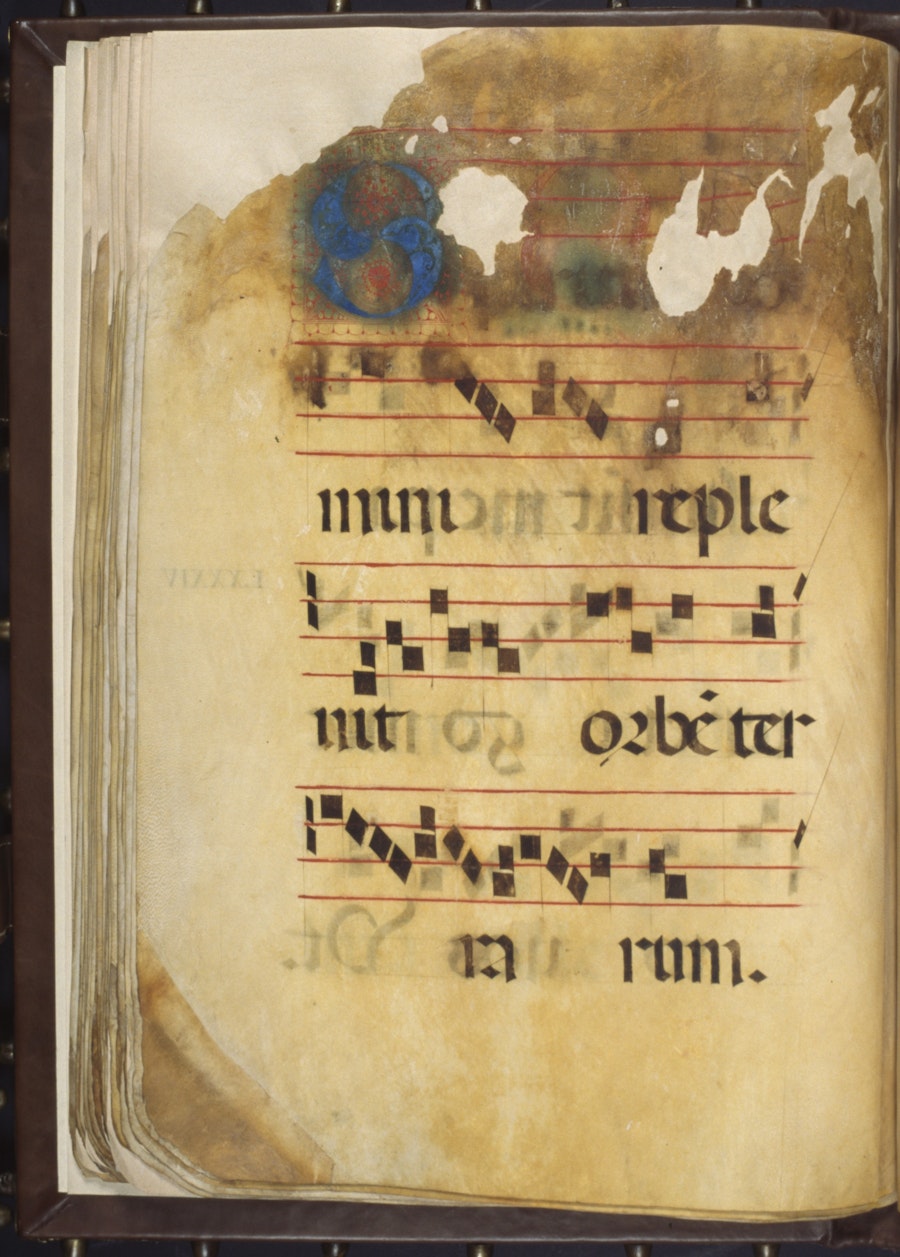 S
mini reple
uit orbē ter
ra rum.